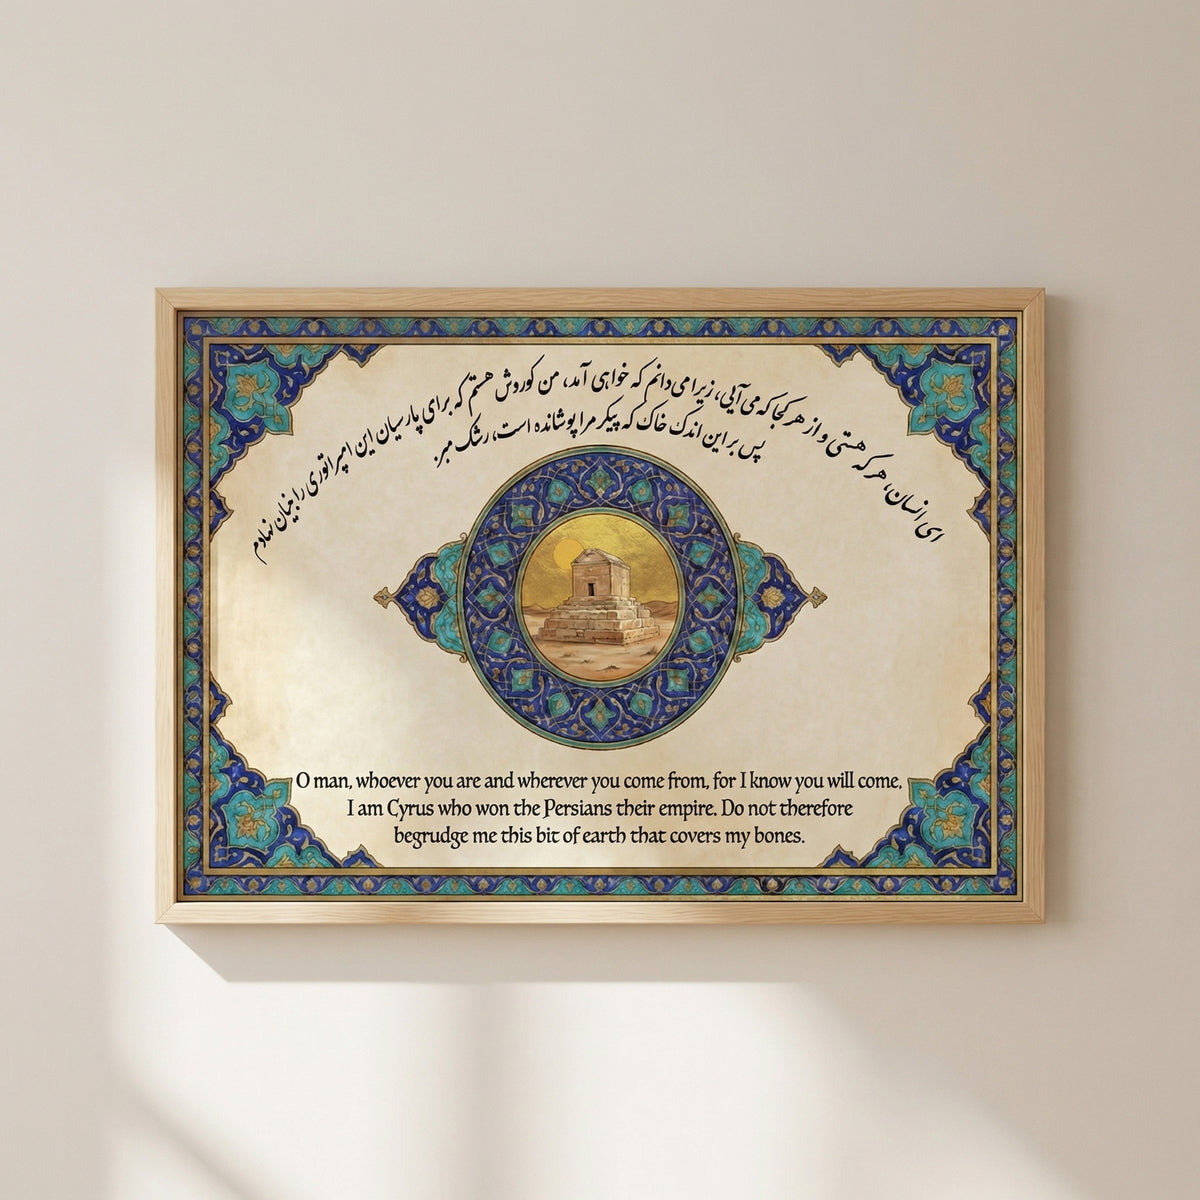 ای انسان، هر که هستی و از هر کجا که می‌آیی، زیرا می‌دانم که خواهی آمد، من کوروش هستم که برای پارسیان این امپراتوری را بنیان نهادم
پس بر این اندک خاک که پیکر مرا پوشانده است، رشک مبر.
O man, whoever you are and wherever you come from, for I know you will come,
I am Cyrus who won the Persians their empire. Do not therefore
begrudge me this bit of earth that covers my bones.